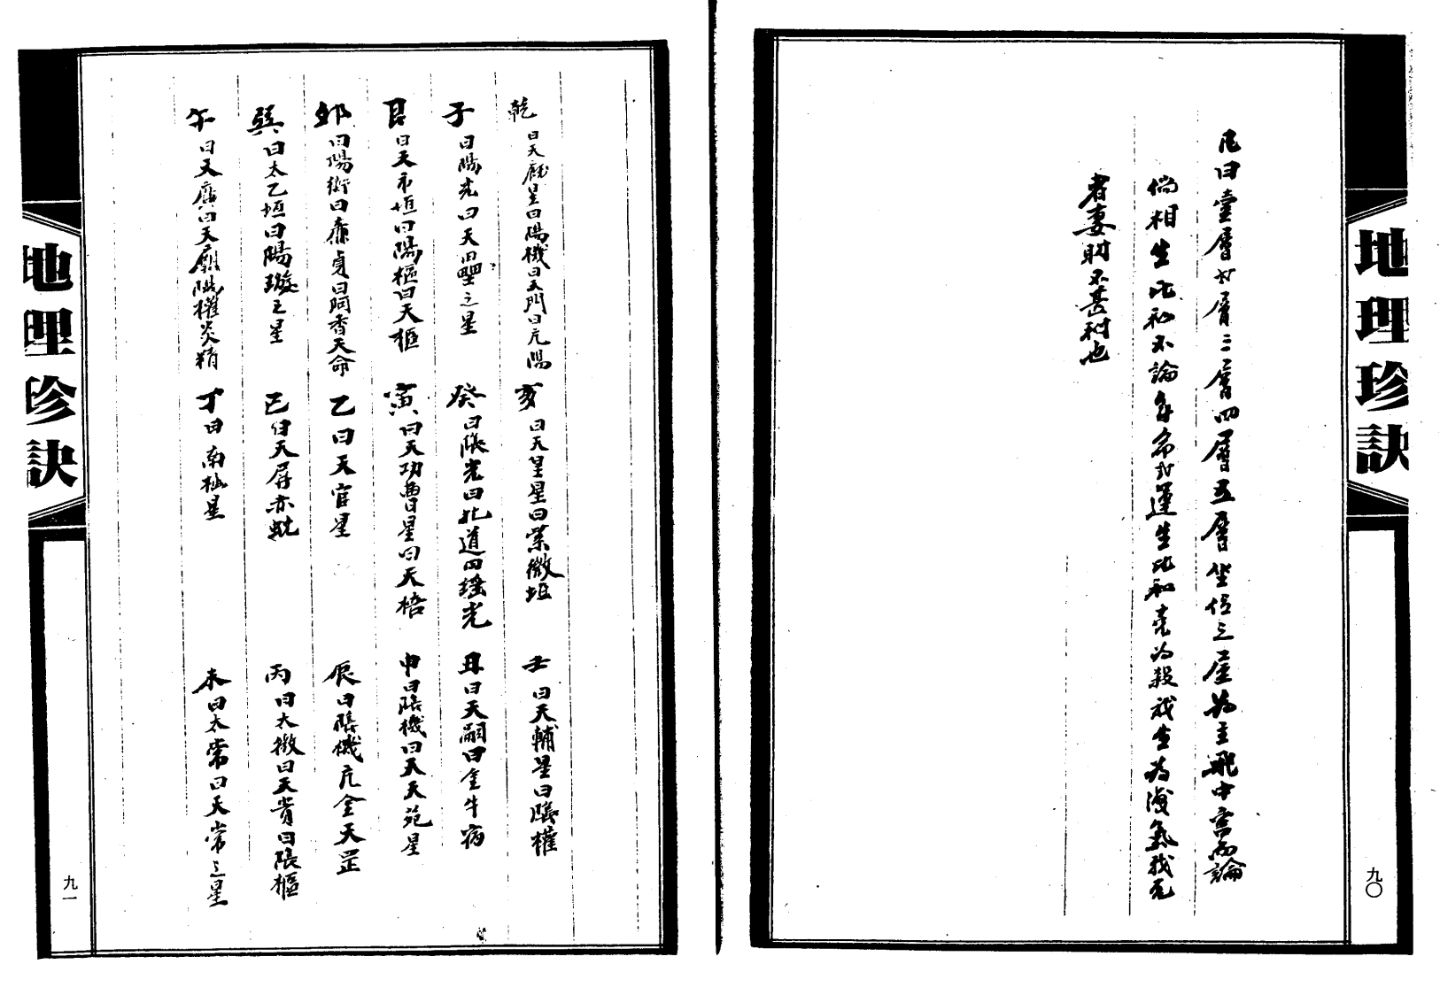 地理珍訣
凡曰壹層弍層三層四層五層坐伍之屋為主飛中宮而論
倘相生比和不論年命弍運生比和克為殺我生為洩氣我克
者妻財不甚利也
九〇
乾曰天廐星曰陽機曰天門曰亢陽 亥曰天皇星曰紫微垣 壬曰天輔星曰陰權
子曰陽光曰天曰壘之星 癸曰陰光曰北道曰瑤光 丑曰天嗣曰金牛宿
艮曰天市垣曰陽樞曰天樞 寅曰天功曹星曰天梧 申曰陰機曰天天苑星
卯曰陽衡曰廉貞曰阿香天命 乙曰天官星 辰曰陰機亢金天罡
巽曰太乙垣曰陽璇之星 巳曰天屏赤蛇 丙曰太微曰天貴曰陰樞
午曰天廣曰天廟陽權炎精 丁曰南極星 未曰太常曰天常之星
地理珍訣
九一